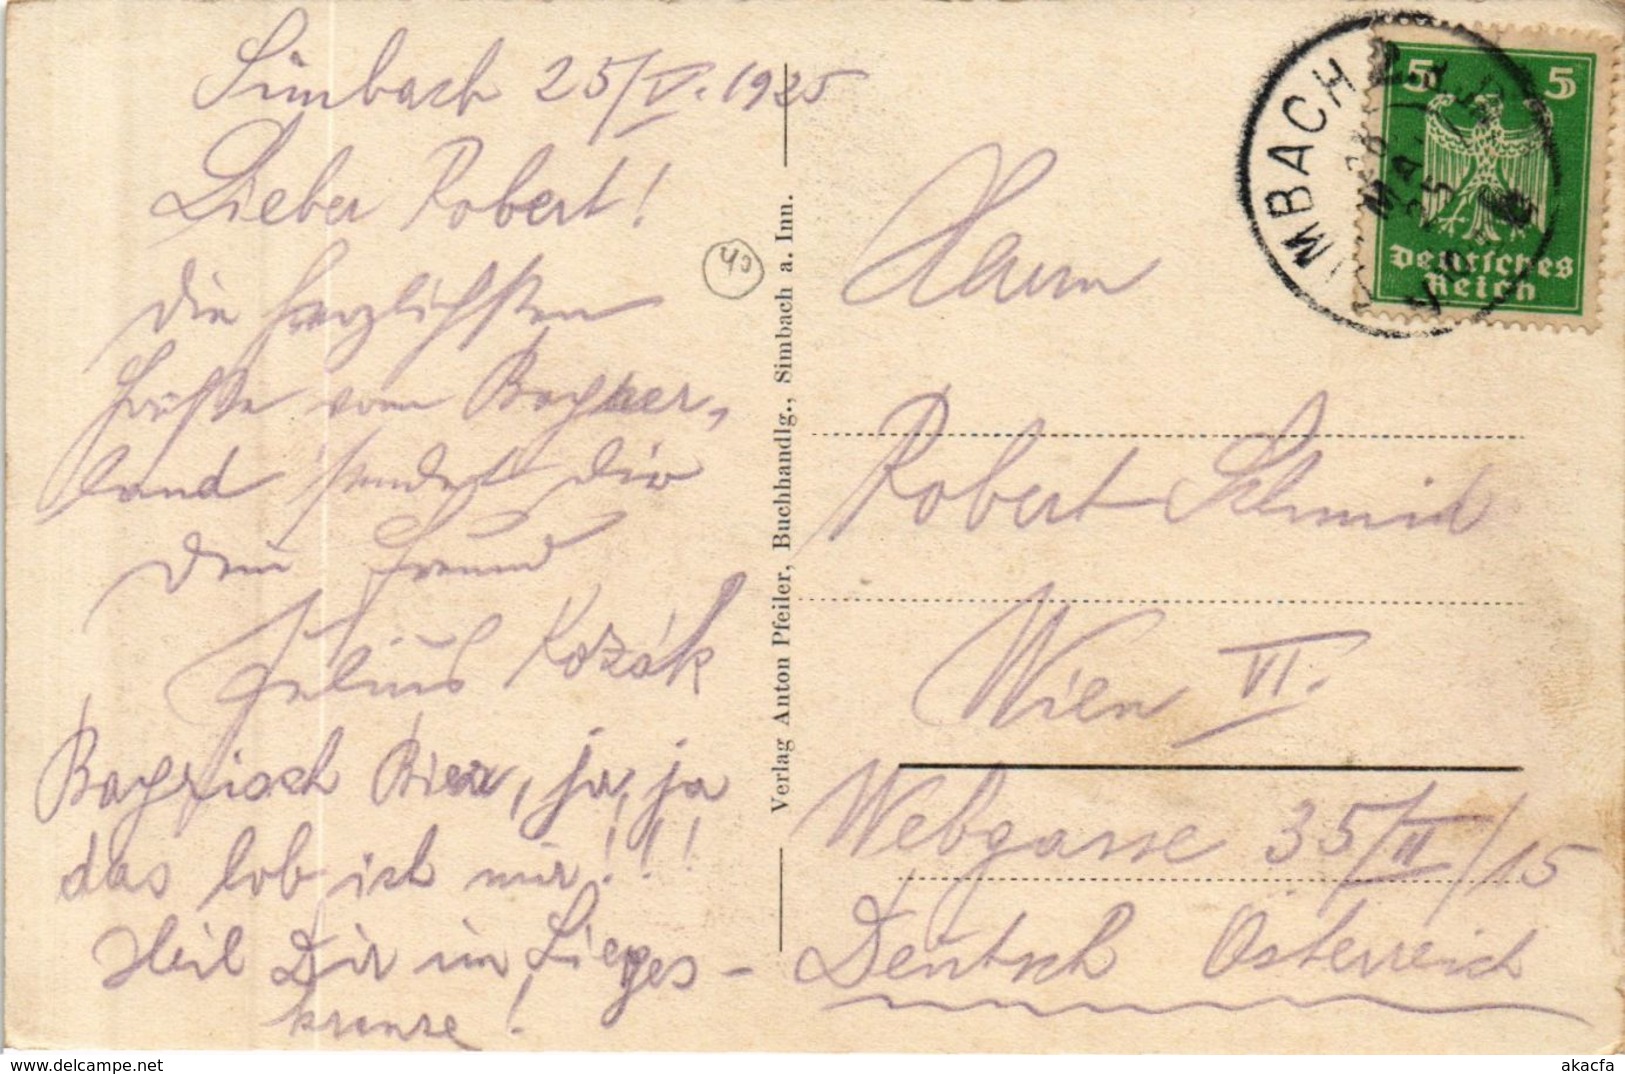 Simbach 25/V. 1925
Lieber Robert!
die herzlichsten
Grüße vom Bayer-
land sendet dir
dein Freund
Julius Kozák
Bayrisch Bier, ja, ja
das lob ich mir!!!
Heil Dir im Sieges-
kranze!
40
Verlag Anton Pfeiler, Buchhandlg., Simbach a. Inn.
SIMBACH
MAI 25
5 5
Deutsches
Reich
Herrn
Robert Schmid
Wien VI.
Webgasse 35/II/15
Deutsch Österreich
delcampe.net
akacfa